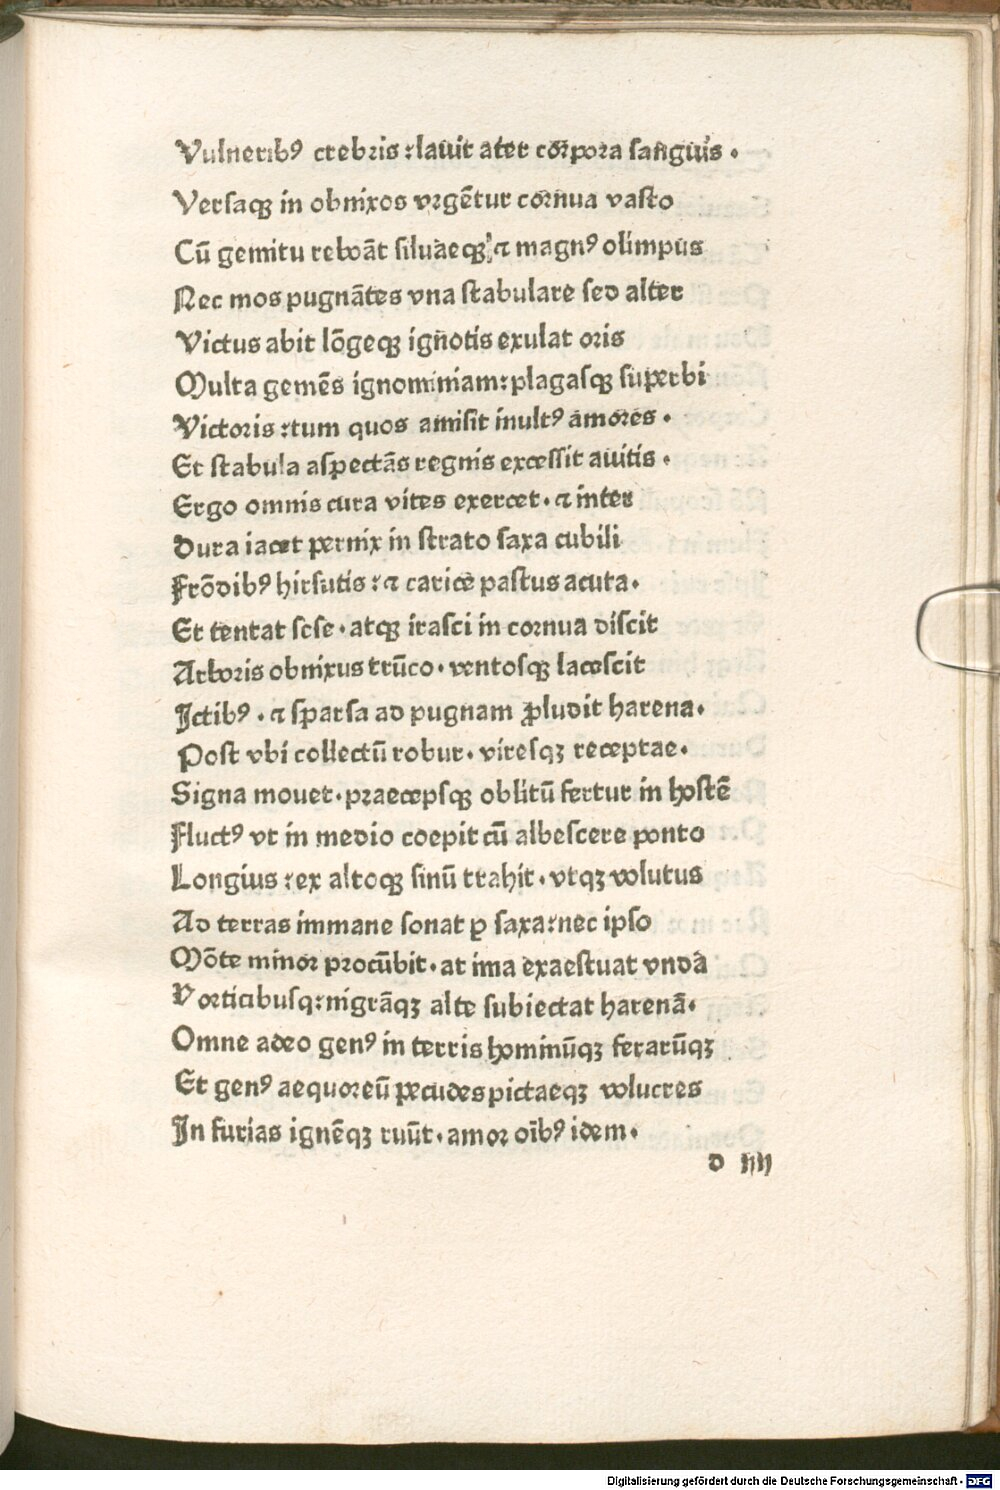 Vulneribꝰ crebris: lauit ater corpora sanguis.
Versaqꝫ in obnixos vrgētur cornua vasto
Cū gemitu reboāt siluaeqꝫ: ⁊ magnꝰ olimpus
Nec mos pugnātes vna stabulare sed alter
Victus abit lōgeqꝫ ignotis exulat oris
Multa gemēs ignominiam: plagasqꝫ superbi
Victoris: tum quos amisit inultꝰ amores.
Et stabula aspectās regnis excessit auitis.
Ergo omnis cura vires exercet. ⁊ inter
Dura iacet pernix in strato saxa cubili
Frōdibꝰ hirsutis: ⁊ carice pastus acuta.
Et tentat sese. atqꝫ irasci in cornua discit
Arboris obnixus trūco. ventosqꝫ lacescit
Ictibꝰ. ⁊ sparsa ad pugnam ꝓludit harena.
Post vbi collectū robur. viresqꝫ receptae.
Signa mouet. praecepsqꝫ oblitū fertur in hostē
Fluctꝰ vt in medio coepit cū albescere ponto
Longius: ex altoqꝫ sinū trahit. vtqꝫ volutus
Ad terras immane sonat ꝑ saxa: nec ipso
Mōte minor procūbit. at ima exaestuat vnda
Vorticibusq: nigrāqꝫ alte subiectat harenā.
Omne adeo genꝰ in terris hominūqꝫ ferarūqꝫ
Et genꝰ aequoreū pecudes pictaeqꝫ volucres
In furias ignēqꝫ ruūt. amor oībꝰ idem.
d iiii
Digitalisierung gefördert durch die Deutsche Forschungsgemeinschaft - DFG